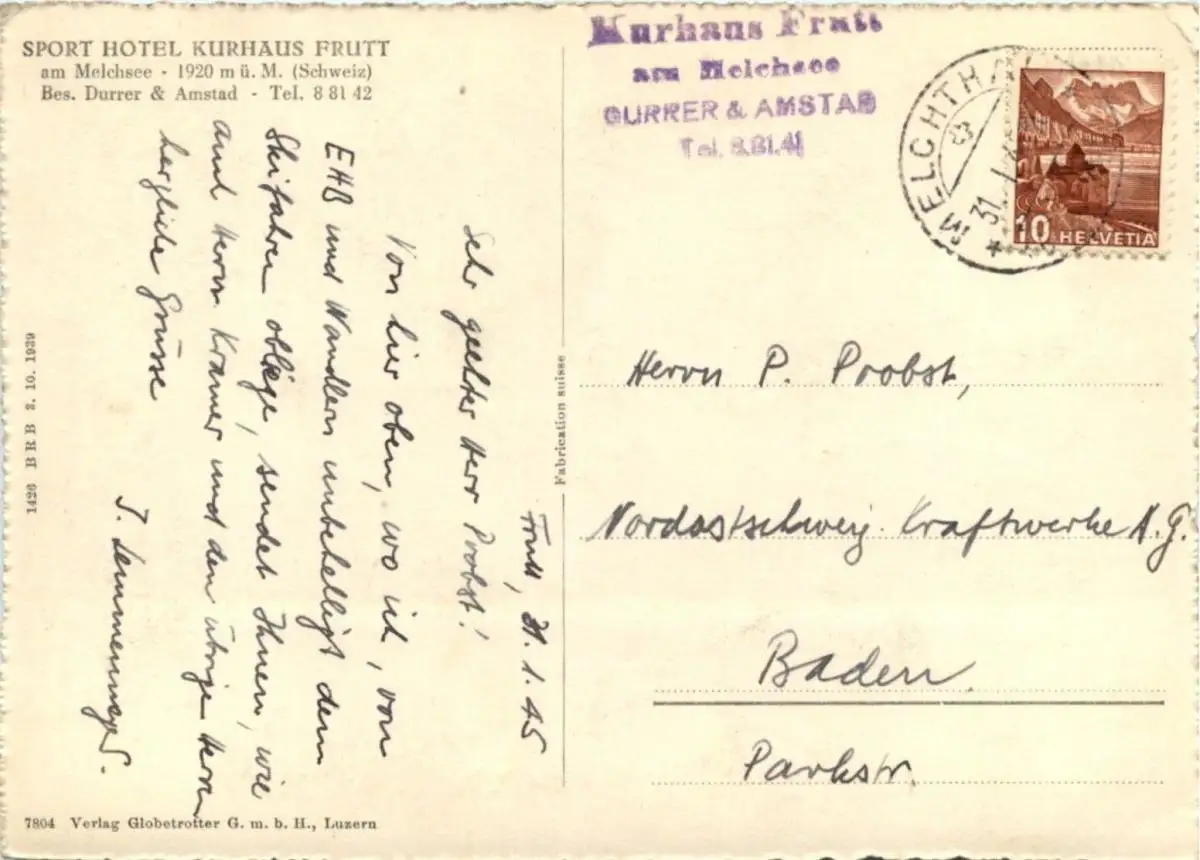 SPORT HOTEL KURHAUS FRUTT
am Melchsee - 1920 m ü. M. (Schweiz)
Bes. Durrer & Amstad - Tel. 8 81 42
Kurhaus Frutt
am Melchsee
DURRER & AMSTAD
Tel. 8.81.41
MELCHTHAL
31. 1.
10 HELVETIA
Frutt, 31. 1. 45
Sehr geehrter Herr Probst!
Von hier oben, wo ich, von
EHB und Wandlern unbehelligt dem
Skifahren obliege, sendet Ihnen, wie
auch Herrn Kramer und den übrigen Herren
herzliche Grüsse
Herrn P. Probst,
Nordostschweiz. Kraftwerke A.G.
Baden
Parkstr.
1426 BRB 3. 10. 1939
Fabrication suisse
7804 Verlag Globetrotter G. m. b. H., Luzern